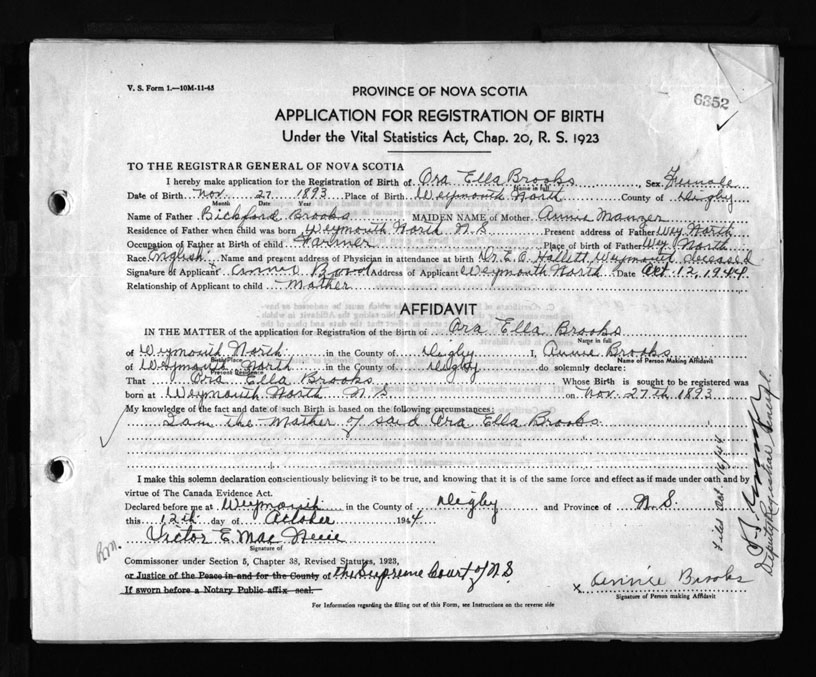 V. S. Form 1.—10M-11-43
PROVINCE OF NOVA SCOTIA
6352
APPLICATION FOR REGISTRATION OF BIRTH
Under the Vital Statistics Act, Chap. 20, R. S. 1923
TO THE REGISTRAR GENERAL OF NOVA SCOTIA
I hereby make application for the Registration of Birth of Ora Ella Brooks Sex Female
Name in full
Date of Birth Nov. 27 1893 Place of Birth Weymouth North County of Digby
Month Day Year
Name of Father Bickford Brooks MAIDEN NAME of Mother Annie Manzer
Residence of Father when child was born Weymouth North N.S. Present address of Father Wey North
Occupation of Father at Birth of child Farmer Place of birth of Father Wey North
Race English Name and present address of Physician in attendance at birth Dr. E. O. Hallett, Weymouth deceased
Signature of Applicant Annie Address of Applicant Weymouth North Date Oct. 12, 1944
Relationship of Applicant to child Mother
AFFIDAVIT
IN THE MATTER of the application for Registration of the Birth of Ora Ella Brooks
Name in full
of Weymouth North in the County of Digby I, Annie Brooks
Birth Place Name of Person Making Affidavit
of Weymouth North in the County of Digby do solemnly declare:
Present Residence
That Ora Ella Brooks Whose Birth is sought to be registered was
born at Weymouth North N.S. on Nov. 27th 1893
My knowledge of the fact and date of such Birth is based on the following circumstances:
I am the mother of said Ora Ella Brooks
I make this solemn declaration conscientiously believing it to be true, and knowing that it is of the same force and effect as if made under oath and by
virtue of The Canada Evidence Act.
Declared before me at Weymouth in the County of Digby and Province of N.S.
this 12th day of October 1944
Victor E. Mac
Signature of
R.M.
Commissioner under Section 5, Chapter 38, Revised Statutes, 1923,
or Justice of the Peace in and for the County of The Supreme Court of N.S.
If sworn before a Notary Public affix seal.
x Annie Brooks
Signature of Person making Affidavit
For Information regarding the filling out of this Form, see Instructions on the reverse side
Filed Oct. 16/44
Deputy Registrar Gen'l.